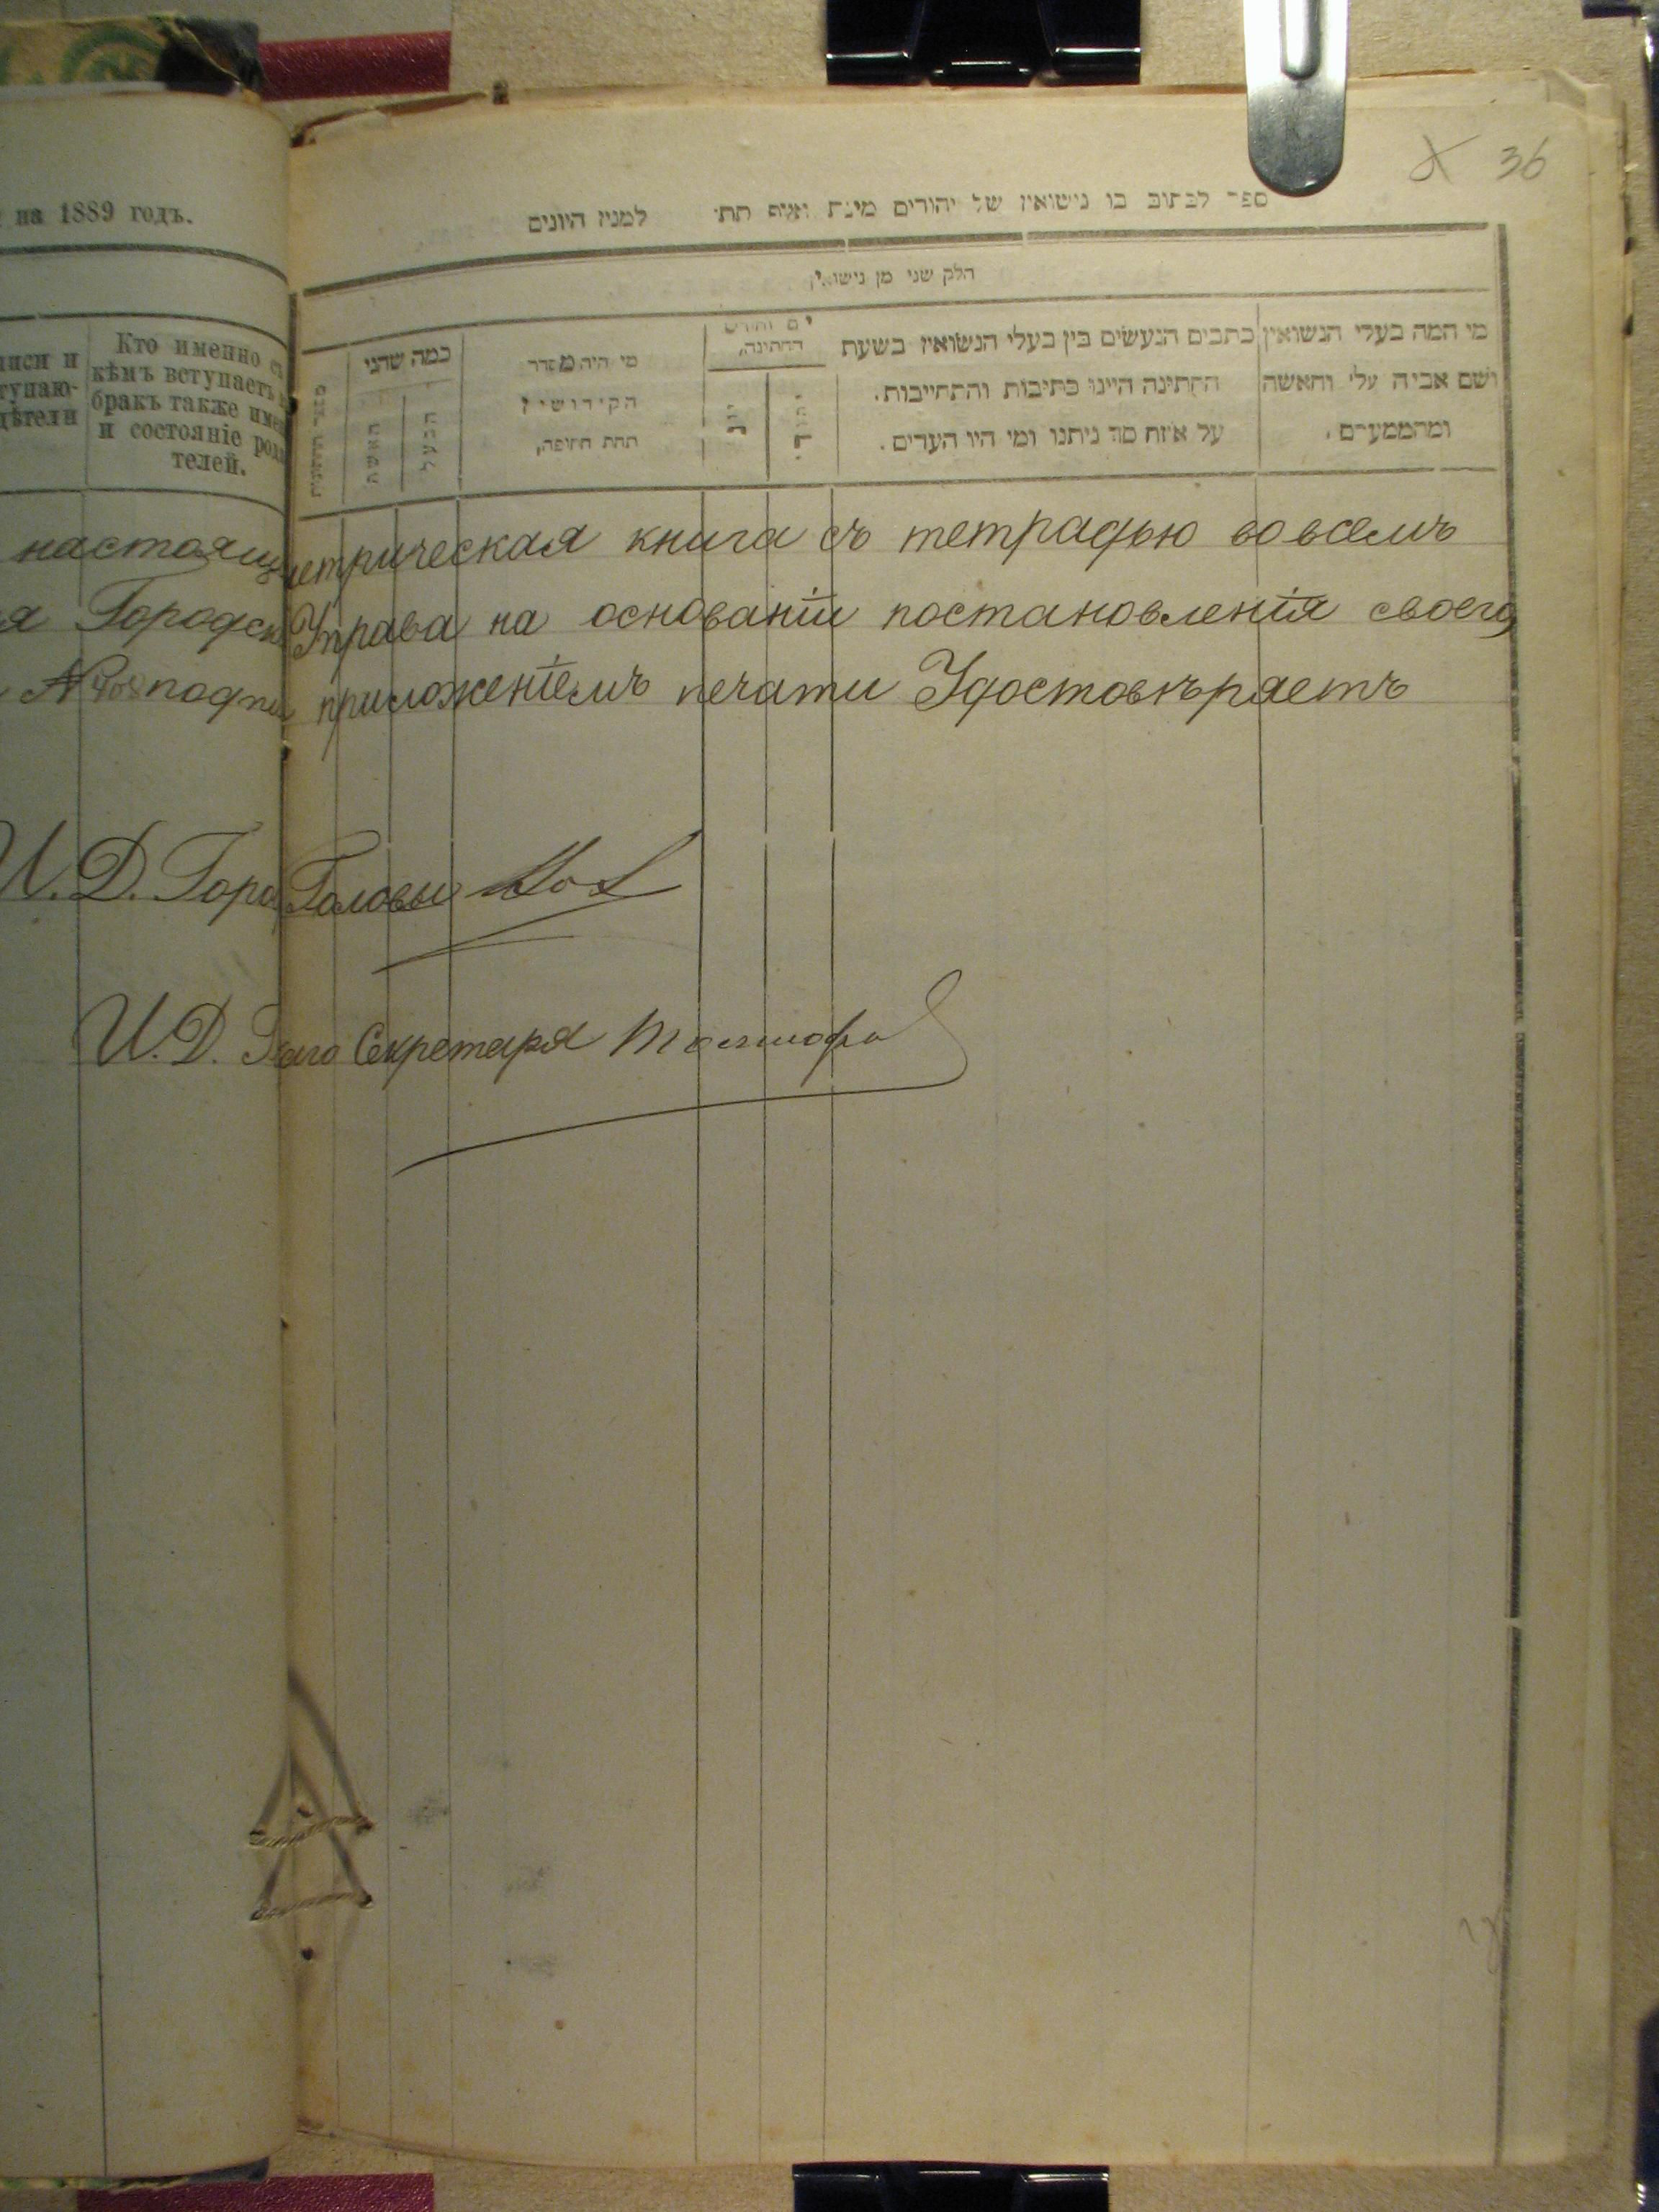 36
на 1889 годъ.
ספר לכתוב בו נישואין של יהודים משנת אלף תת למנין היונים
חלק שני מן נישואין
Кто именно съ
кѣмъ вступаетъ въ
бракъ также имя
и состояніе роди
телей.
כמה שני
האשה
הבעל
מי היה מסדר
הקידושין
תחת חופה,
יום וחודש
החתונה,
יוני
יהודי
כתבים הנעשים בין בעלי הנשואין בשעת
החתונה היינו כתיבות והתחייבות.
על איזה סך ניתנו ומי היו העדים.
מי המה בעלי הנשואין
ושם אביה עלי והאשה
ומהמעמדם.
настоящ етрическая книга съ тетрадью во всемъ
я Городск Управа на основаніи постановленія своего
подпи приложеніемъ печати Удостовѣряетъ
И. Д. Горо Головы
И. Д. Секретаря